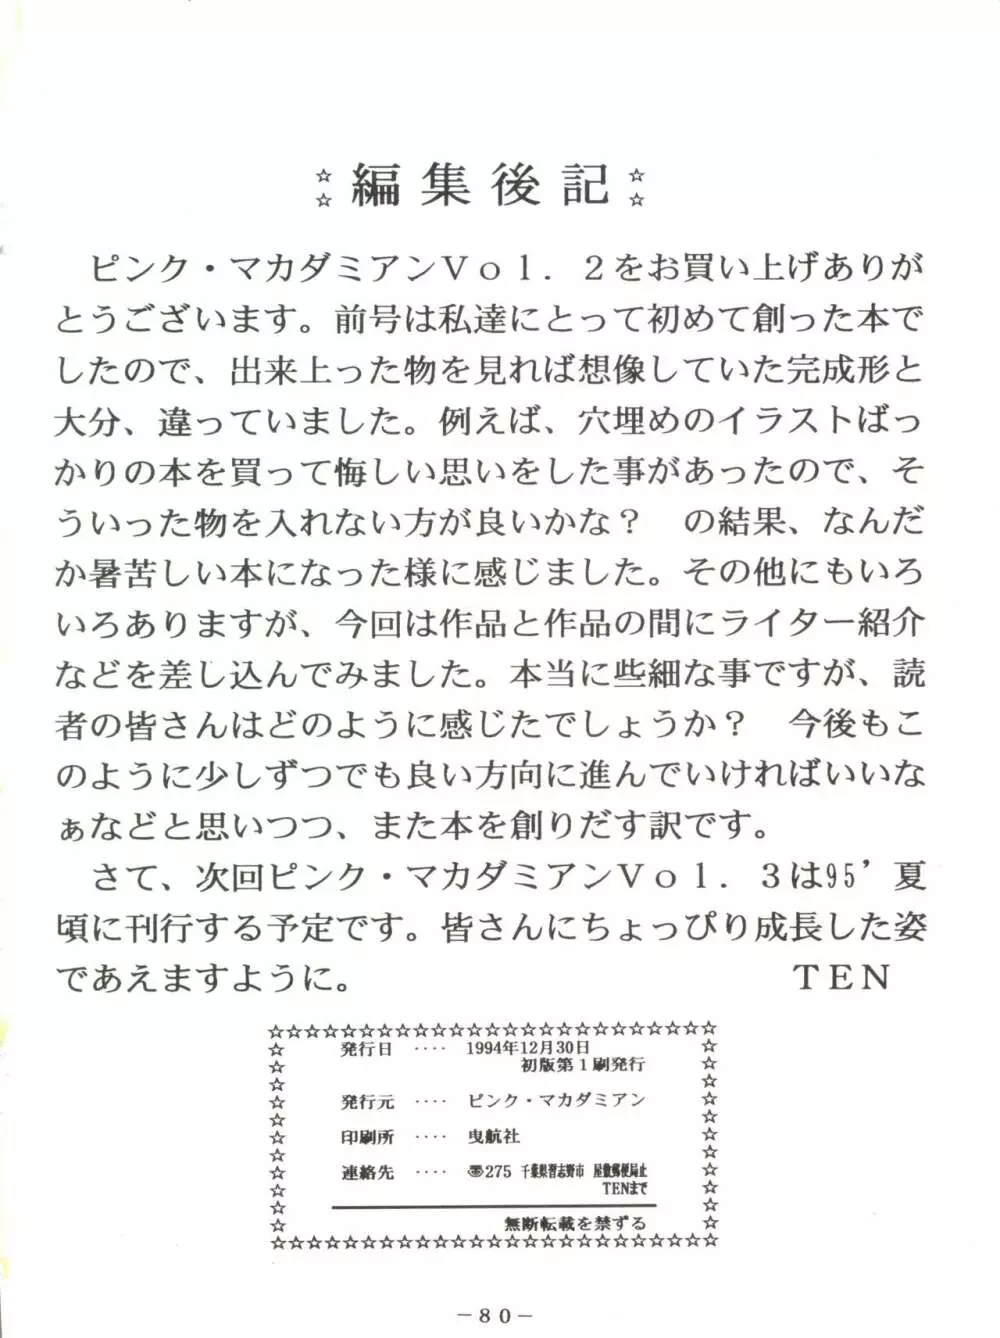 ☆☆編集後記☆☆
ピンク・マカダミアンVol.2をお買い上げありが
とうございます。前号は私達にとって初めて創った本で
したので、出来上った物を見れば想像していた完成形と
大分、違っていました。例えば、穴埋めのイラストばっ
かりの本を買って悔しい思いをした事があったので、そ
ういった物を入れない方が良いかな？　の結果、なんだ
か暑苦しい本になった様に感じました。その他にもいろ
いろありますが、今回は作品と作品の間にライター紹介
などを差し込んでみました。本当に些細な事ですが、読
者の皆さんはどのように感じたでしょうか？　今後もこ
のように少しずつでも良い方向に進んでいければいいな
ぁなどと思いつつ、また本を創りだす訳です。
さて、次回ピンク・マカダミアンVol.3は95’夏
頃に刊行する予定です。皆さんにちょっぴり成長した姿
であえますように。　TEN
発行日 ‥‥ 1994年12月30日
初版第1刷発行
発行元 ‥‥ ピンク・マカダミアン
印刷所 ‥‥ 曳航社
連絡先 ‥‥ 〠275 千葉県習志野市 屋敷郵便局止
TENまで
無断転載を禁ずる
－80－